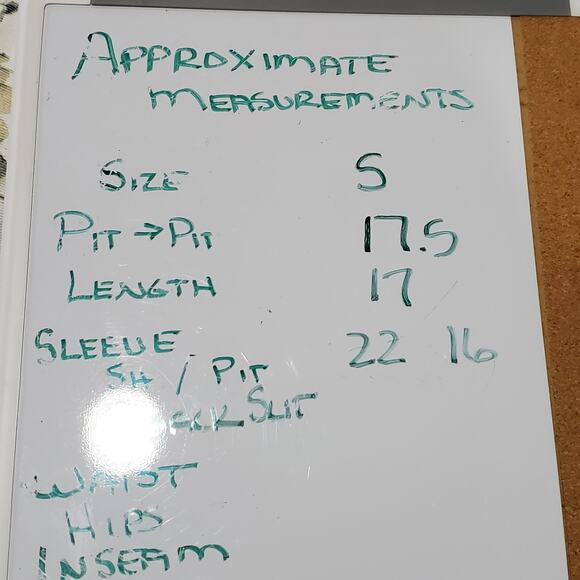 APPROXIMATE
MEASUREMENTS
SIZE S
PIT → PIT 17.5
LENGTH 17
SLEEVE 22 16
SH / PIT
SLIT
WAIST
HIPS
INSEAM